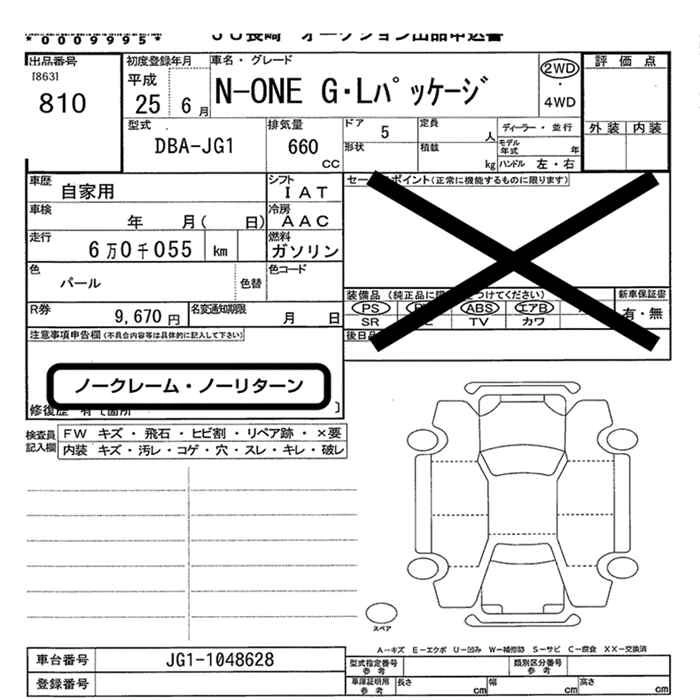 *0009995*
JU長崎 オークション出品申込書
出品番号 初度登録年月 車名・グレード 評価点
[863] 平成 2WD
810 25 6月 N-ONE G・Lパッケージ ・
4WD
型式 排気量 ドア 定員 ディーラー・並行 外装 内装
DBA-JG1 660 5 人 モデル年式 年
CC 形状 積載 kg ハンドル 左・右
車歴 シフト
自家用 IAT
車検 冷房
年 月( 日) AAC
走行 燃料
6万0千055 km ガソリン
色 色コード
パール 色替
装備品 新車保証書
PS ABS エアB 有・無
SR TV カワ
R券 名変通知期限
9,670円 月 日
注意事項申告欄(不具合内容等は具体的に記入して下さい)
ノークレーム・ノーリターン
検査員 FW キズ・飛石・ヒビ割・リペア跡・×要
記入欄 内装 キズ・汚レ・コゲ・穴・スレ・キレ・破レ
スペア
A-キズ E-エクボ U-凹み W-補修跡 S-サビ C-腐食 XX-交換済
車台番号 JG1-1048628 型式指定番号 参考 類別区分番号 参考
登録番号 車庫証明用 参考 長さ cm 幅 cm 高さ cm